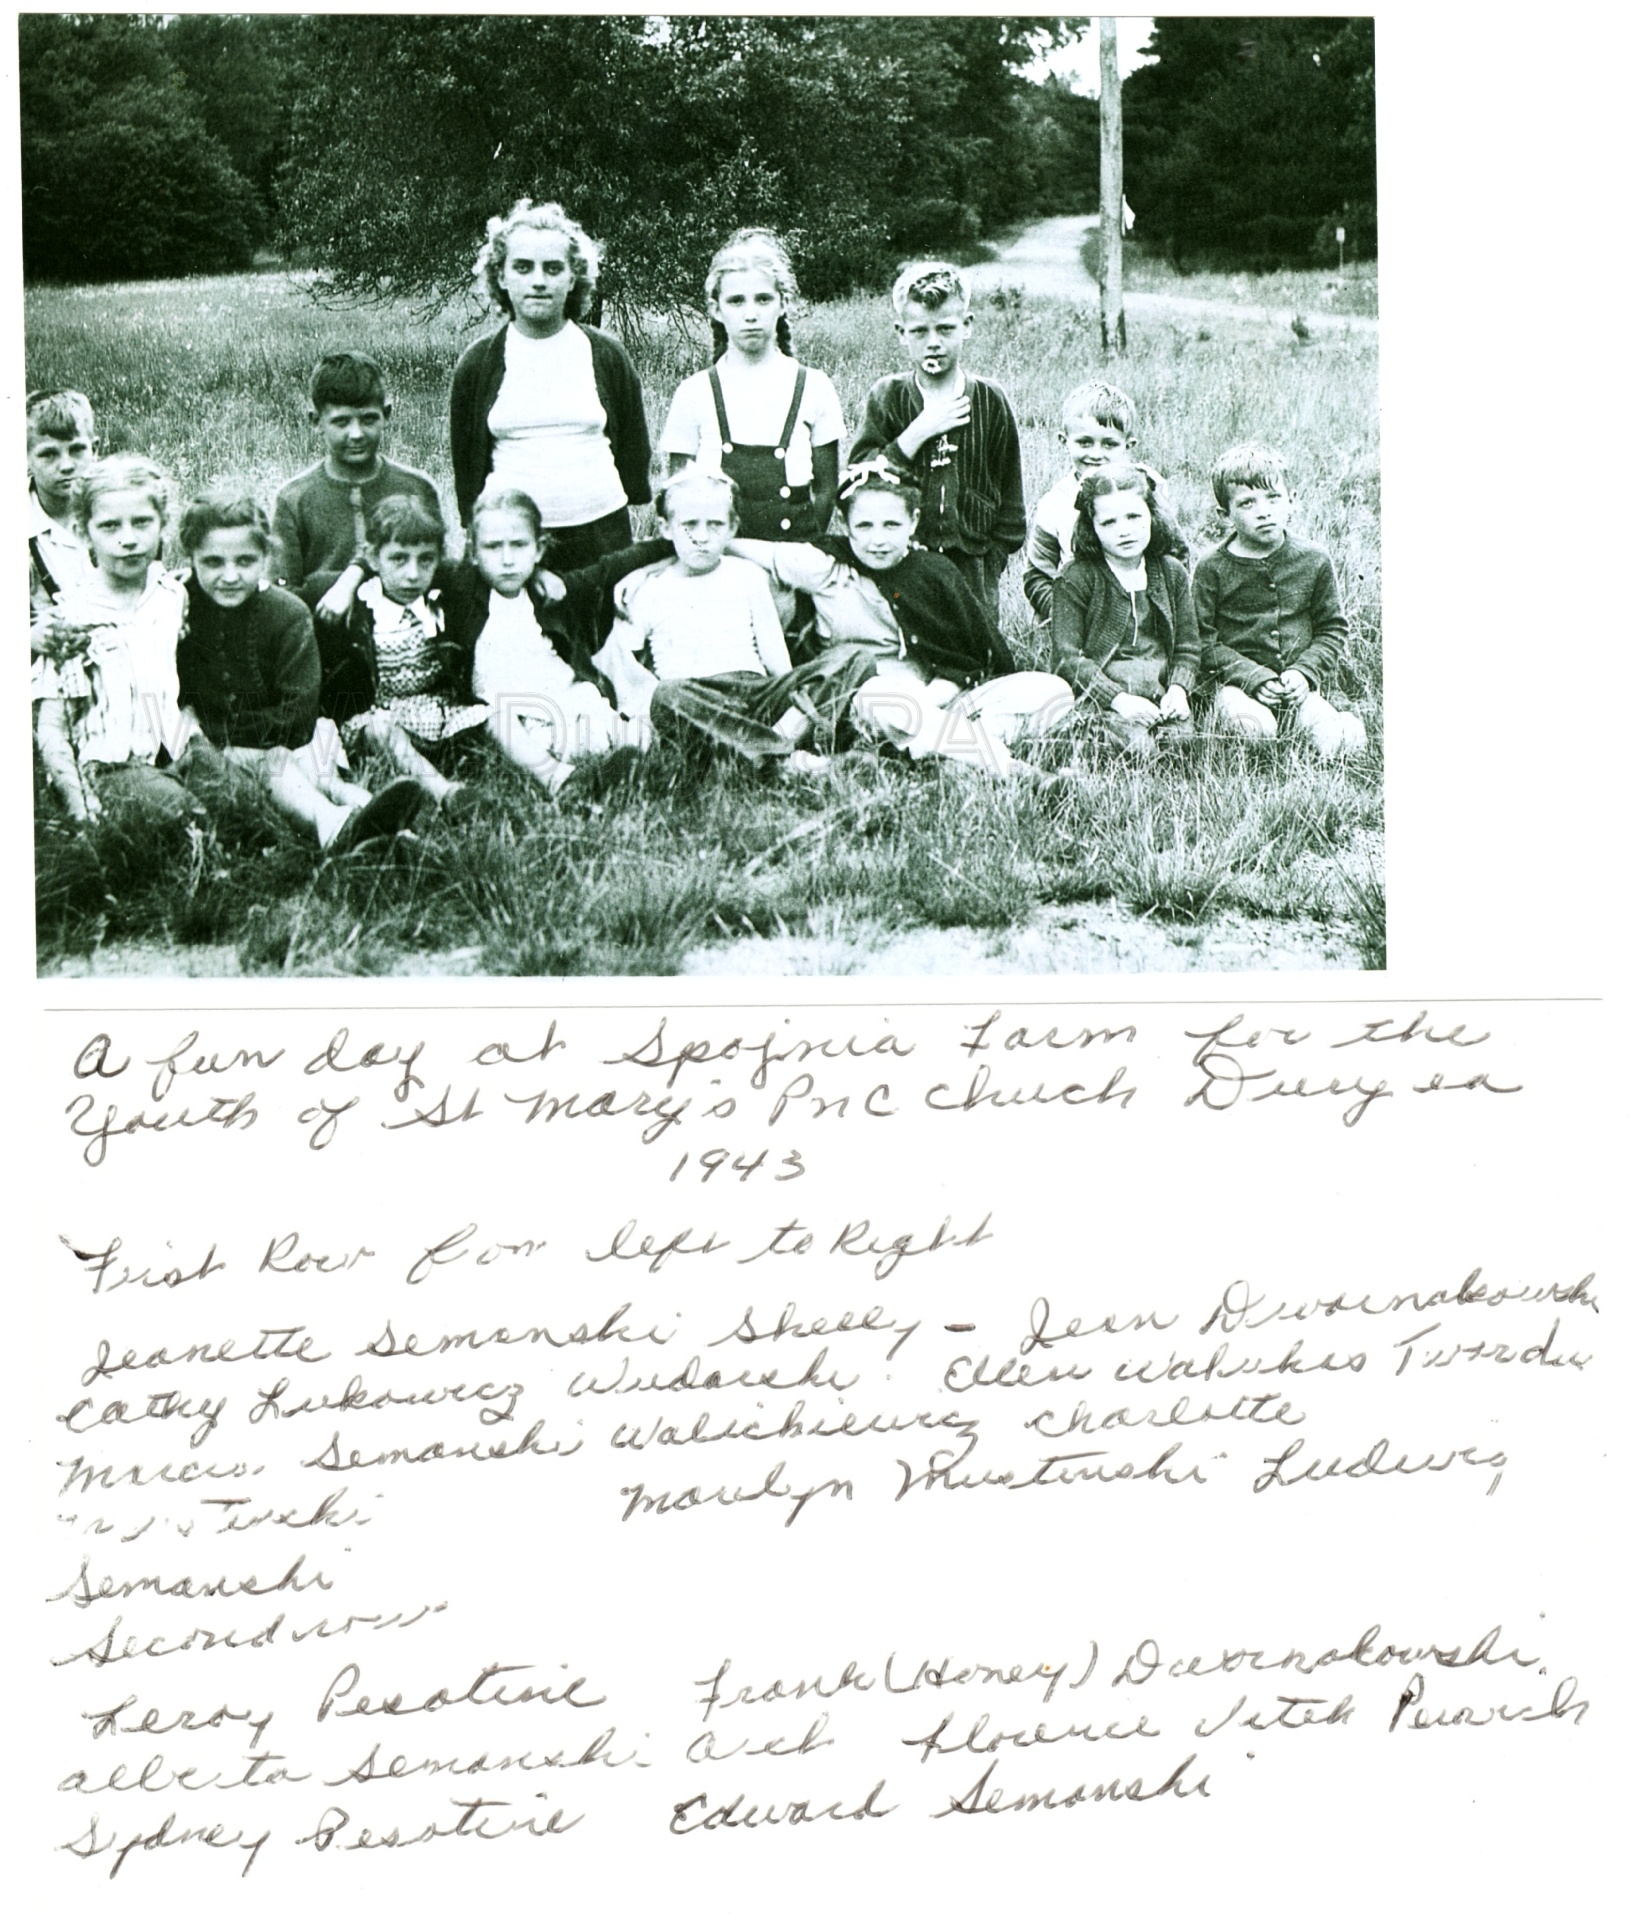 www.DuryeaPA.com
A fun day at Spojnia Farm for the
Youth of St Mary's PNC Chuch Duryea
1943
First Row from left to Right
Jeanette Semanski Skelly - Jean Dwornakowski
Cathy Lukowicz Wudarski Ellen Walukas Twardu
Marcia Semanski Walichiewicz Charlotte
Marilyn Mustinski Ludwig
Semanski
Second row
Leroy Pesotine Frank (Honey) Dwornakowski
Alberta Semanski Florence Vitek Pewich
Sydney Pesotine Edward Semanski